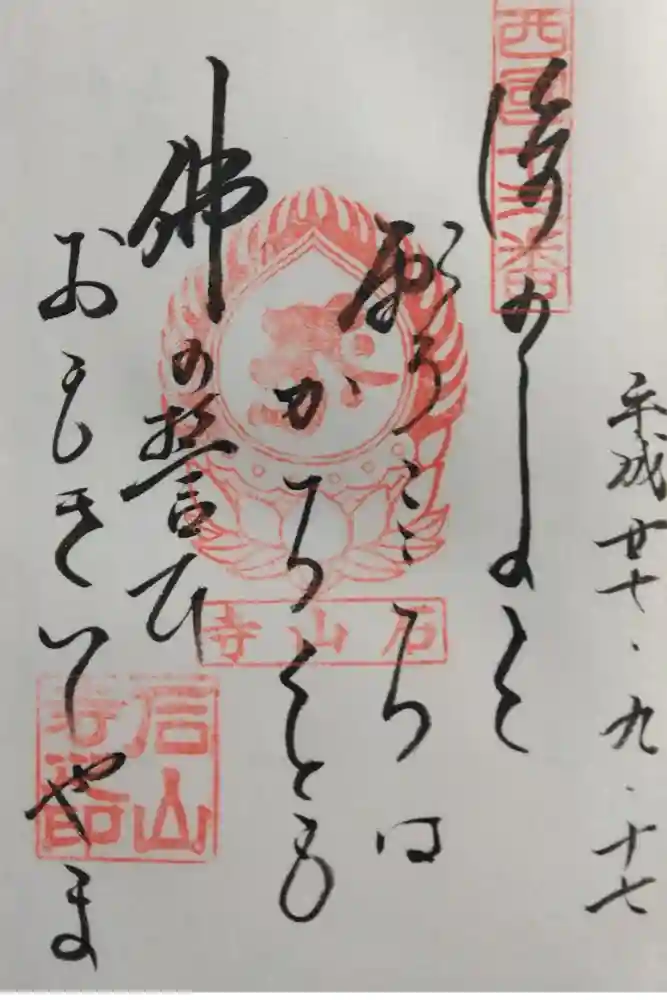 平成廿七・九・十七
西国十三番
後のよを
願うこゝろは
かろくとも
佛の誓ひ
おもきいしやま
石山寺
石山